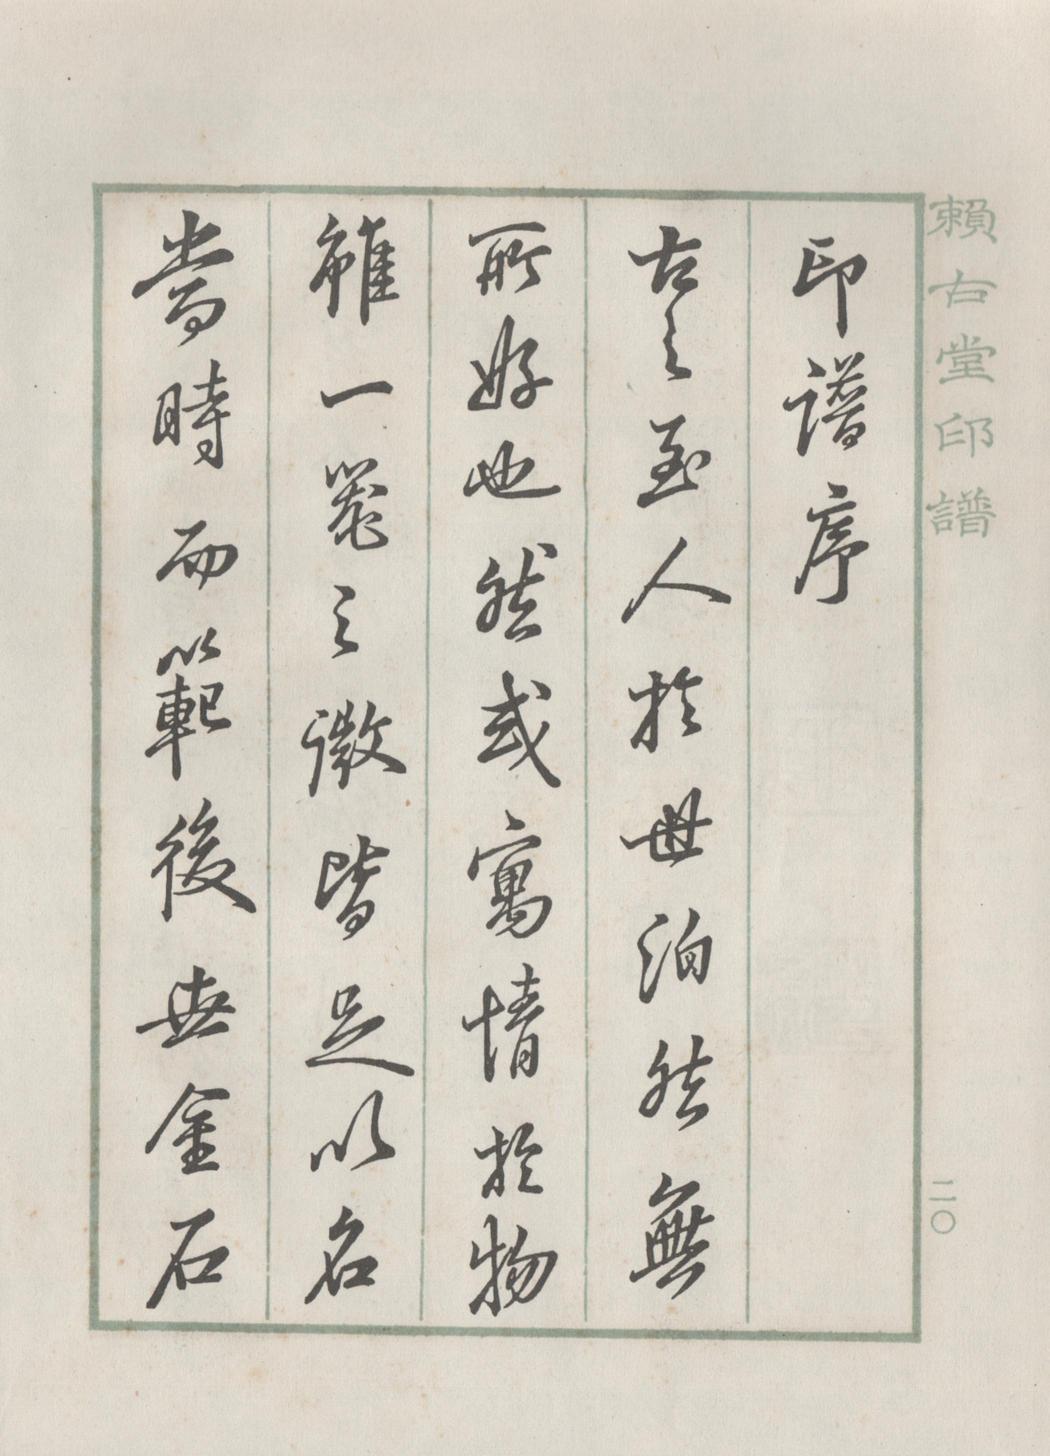 賴古堂印譜
二〇
印譜序
古之至人於世泊然無
所好也然或寓情於物
雖一藝之微皆足以名
當時而範後世金石